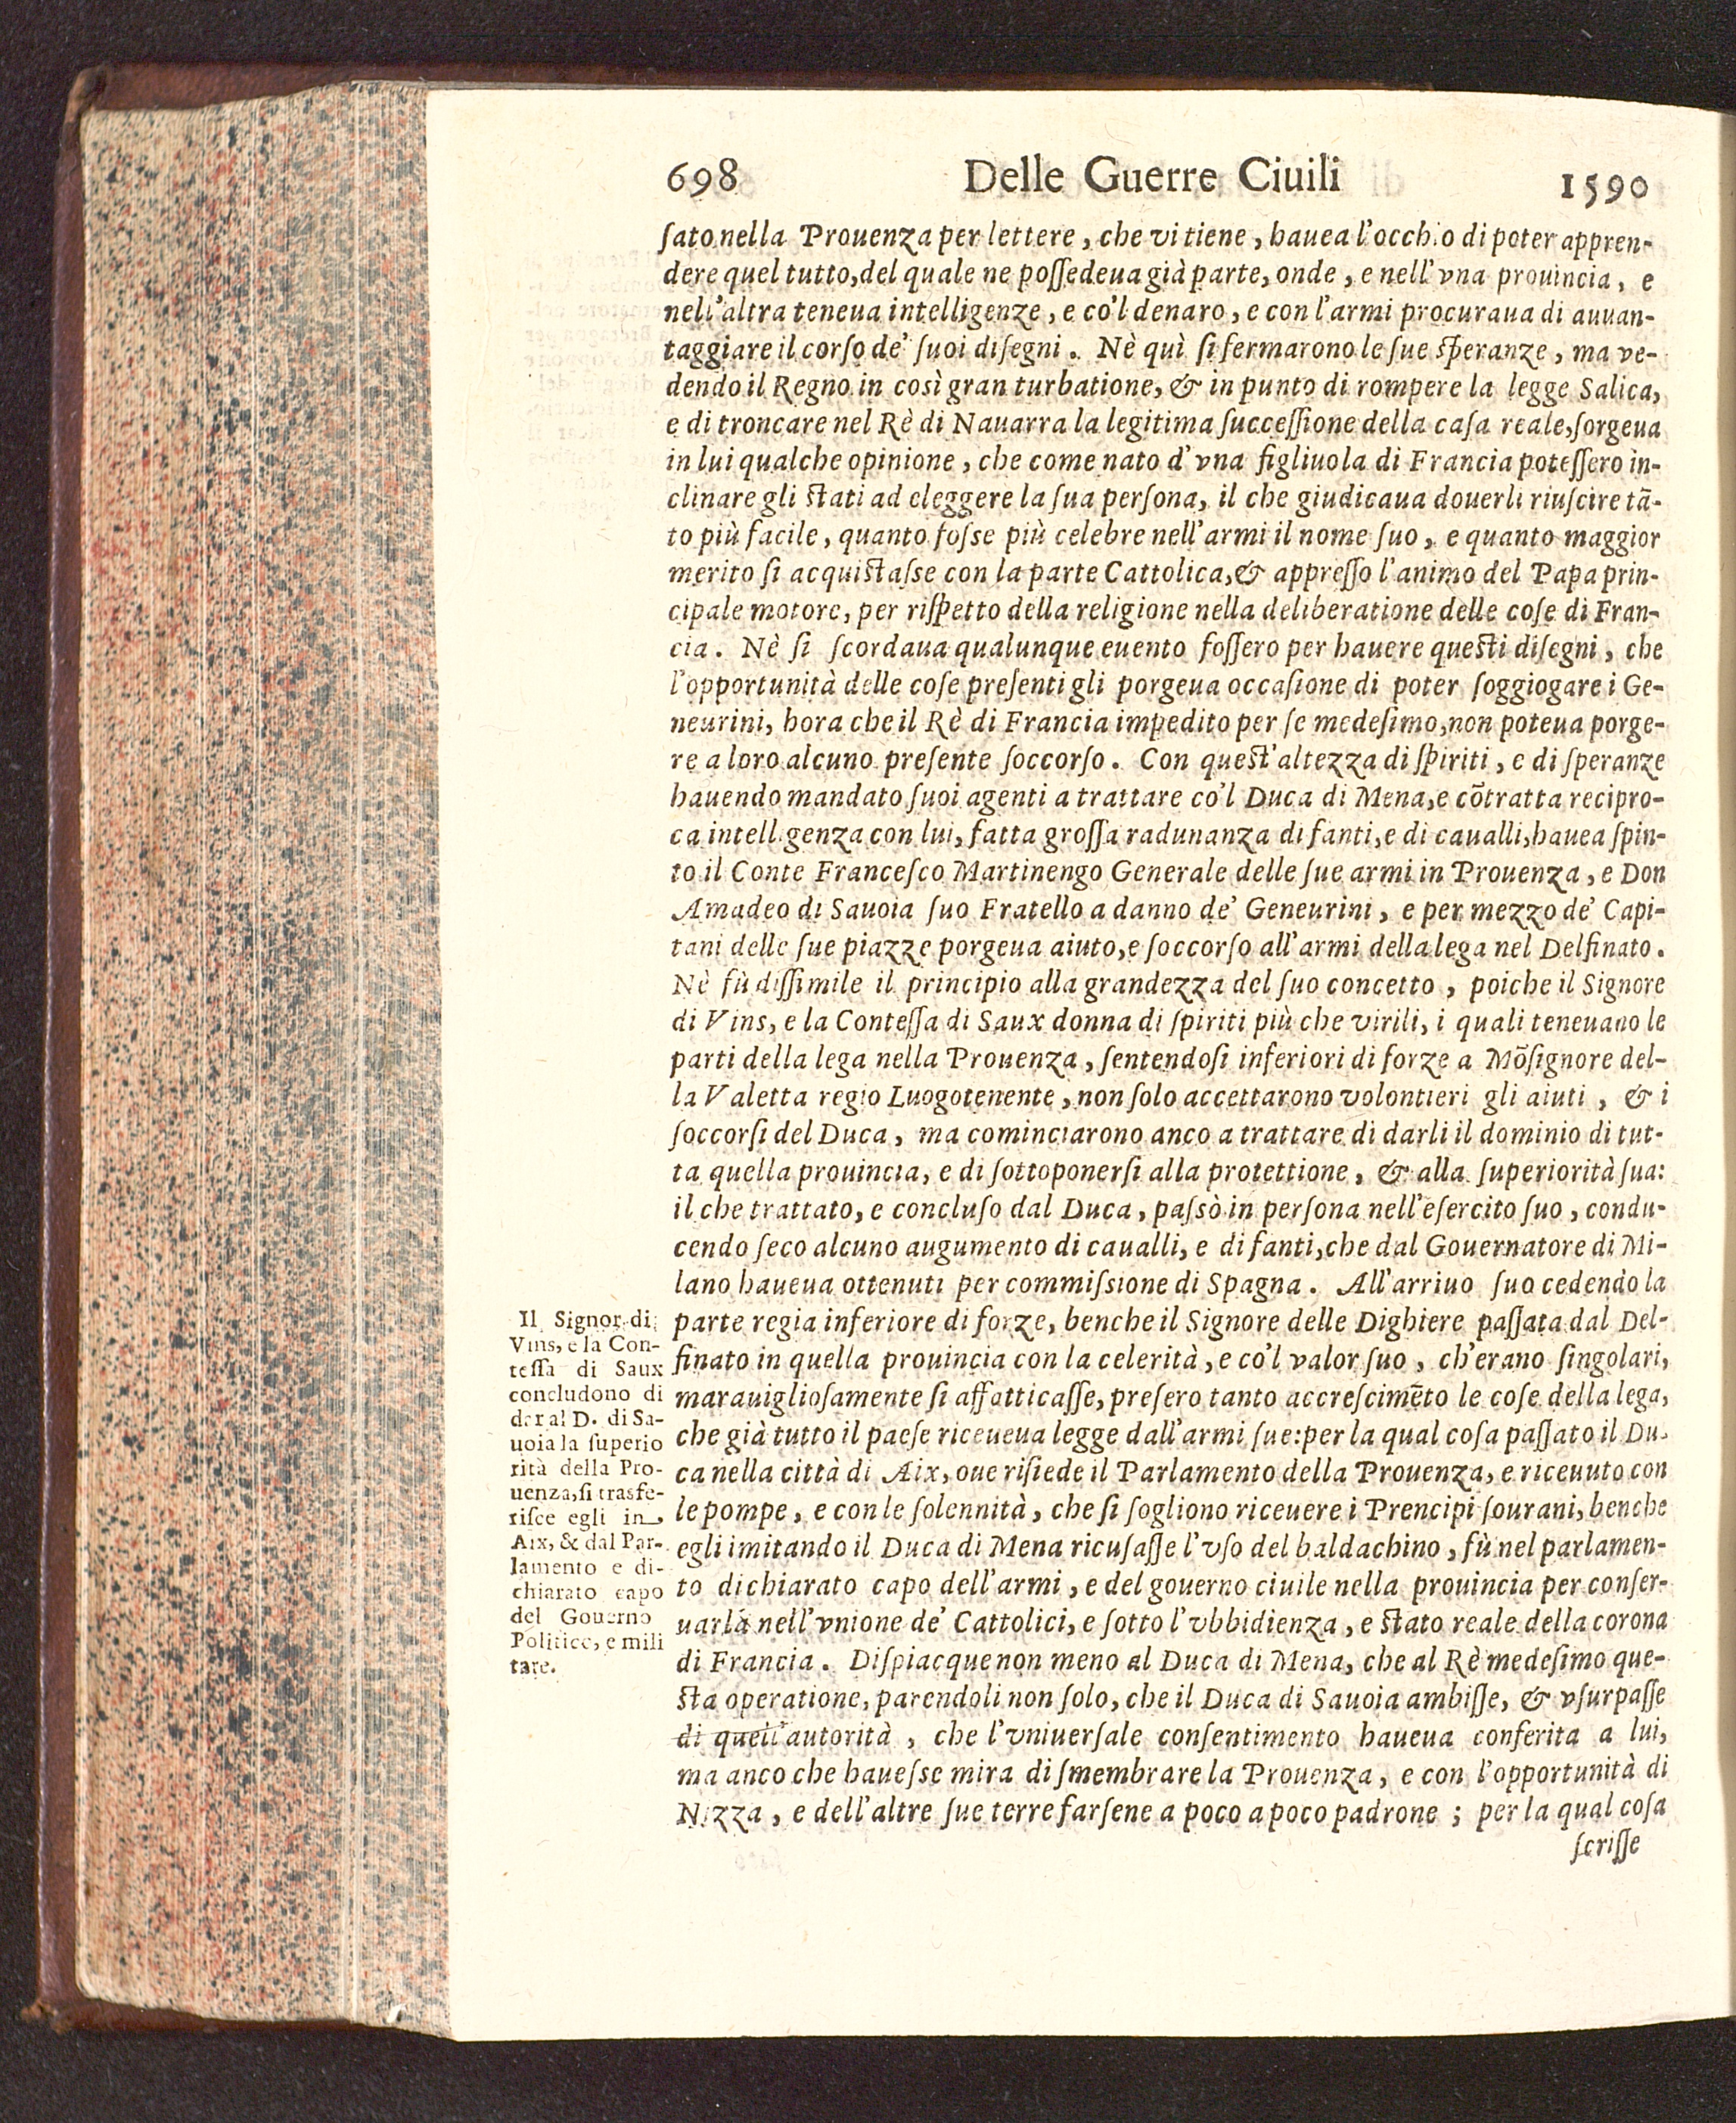 698 Delle Guerre Ciuili 1590
ſato nella Prouenza per lettere, che vi tiene, hauea l'occhio di poter appren-
dere quel tutto, del quale ne poſſedeua già parte, onde, e nell'vna prouincia, e
nell'altra teneua intelligenze, e co'l denaro, e con l'armi procuraua di auuan-
taggiare il corſo de' ſuoi diſegni. Nè quì ſi fermarono le ſue ſperanze, ma ve-
dendo il Regno in così gran turbatione, & in punto di rompere la legge Salica,
e di troncare nel Rè di Nauarra la legitima ſucceſſione della caſa reale, ſorgeua
in lui qualche opinione, che come nato d'vna figliuola di Francia poteſſero in-
clinare gli ſtati ad eleggere la ſua perſona, il che giudicaua douerli riuſcire tā-
to più facile, quanto foſse più celebre nell'armi il nome ſuo, e quanto maggior
merito ſi acquiſtaſse con la parte Cattolica, & appreſſo l'animo del Papa prin-
cipale motore, per riſpetto della religione nella deliberatione delle coſe di Fran-
cia. Nè ſi ſcordaua qualunque euento foſſero per hauere queſti diſegni, che
l'opportunità delle coſe preſenti gli porgeua occaſione di poter ſoggiogare i Ge-
neurini, hora che il Rè di Francia impedito per ſe medeſimo, non poteua porge-
re a loro alcuno preſente ſoccorſo. Con queſt'altezza di ſpiriti, e di ſperanze
hauendo mandato ſuoi agenti a trattare co'l Duca di Mena, e cōtratta recipro-
ca intelligenza con lui, fatta groſſa radunanza di fanti, e di caualli, hauea ſpin-
to il Conte Franceſco Martinengo Generale delle ſue armi in Prouenza, e Don
Amadeo di Sauoia ſuo Fratello a danno de' Geneurini, e per mezzo de' Capi-
tani delle ſue piazze porgeua aiuto, e ſoccorſo all'armi della lega nel Delfinato.
Nè fù diſſimile il principio alla grandezza del ſuo concetto, poiche il Signore
di Vins, e la Conteſſa di Saux donna di ſpiriti più che virili, i quali teneuano le
parti della lega nella Prouenza, ſentendoſi inferiori di forze a Mōſignore del-
la Valetta regio Luogotenente, non ſolo accettarono volontieri gli aiuti, & i
ſoccorſi del Duca, ma cominciarono anco a trattare di darli il dominio di tut-
ta quella prouincia, e di ſottoponerſi alla protettione, & alla ſuperiorità ſua:
il che trattato, e concluſo dal Duca, paſsò in perſona nell'eſercito ſuo, condu-
cendo ſeco alcuno augumento di caualli, e di fanti, che dal Gouernatore di Mi-
lano haueua ottenuti per commiſsione di Spagna. All'arriuo ſuo cedendo la
parte regia inferiore di forze, benche il Signore delle Dighiere paſſata dal Del-
finato in quella prouincia con la celerità, e co'l valor ſuo, ch'erano ſingolari,
marauiglioſamente ſi affatticaſſe, preſero tanto accreſcimēto le coſe della lega,
che già tutto il paeſe riceueua legge dall'armi ſue: per la qual coſa paſſato il Du-
ca nella città di Aix, oue riſiede il Parlamento della Prouenza, e riceuuto con
le pompe, e con le ſolennità, che ſi ſogliono riceuere i Prencipi ſourani, benche
egli imitando il Duca di Mena ricuſaſſe l'vſo del baldachino, fù nel parlamen-
to dichiarato capo dell'armi, e del gouerno ciuile nella prouincia per conſer-
uarla nell'vnione de' Cattolici, e ſotto l'vbbidienza, e ſtato reale della corona
di Francia. Diſpiacque non meno al Duca di Mena, che al Rè medeſimo que-
ſta operatione, parendoli non ſolo, che il Duca di Sauoia ambiſſe, & vſurpaſſe
di quell'autorità, che l'vniuerſale conſentimento haueua conferita a lui,
ma anco che haueſse mira di ſmembrare la Prouenza, e con l'opportunità di
Nizza, e dell'altre ſue terre farſene a poco a poco padrone; per la qual coſa
ſcriſſe
Il Signor di
Vins, e la Con-
teſſa di Saux
concludono di
dar al D. di Sa-
uoia la ſuperio
rità della Pro-
uenza, ſi trasfe-
riſce egli in
Aix, & dal Par-
lamento e di-
chiarato capo
del Gouerno
Politico, e mili
tare.